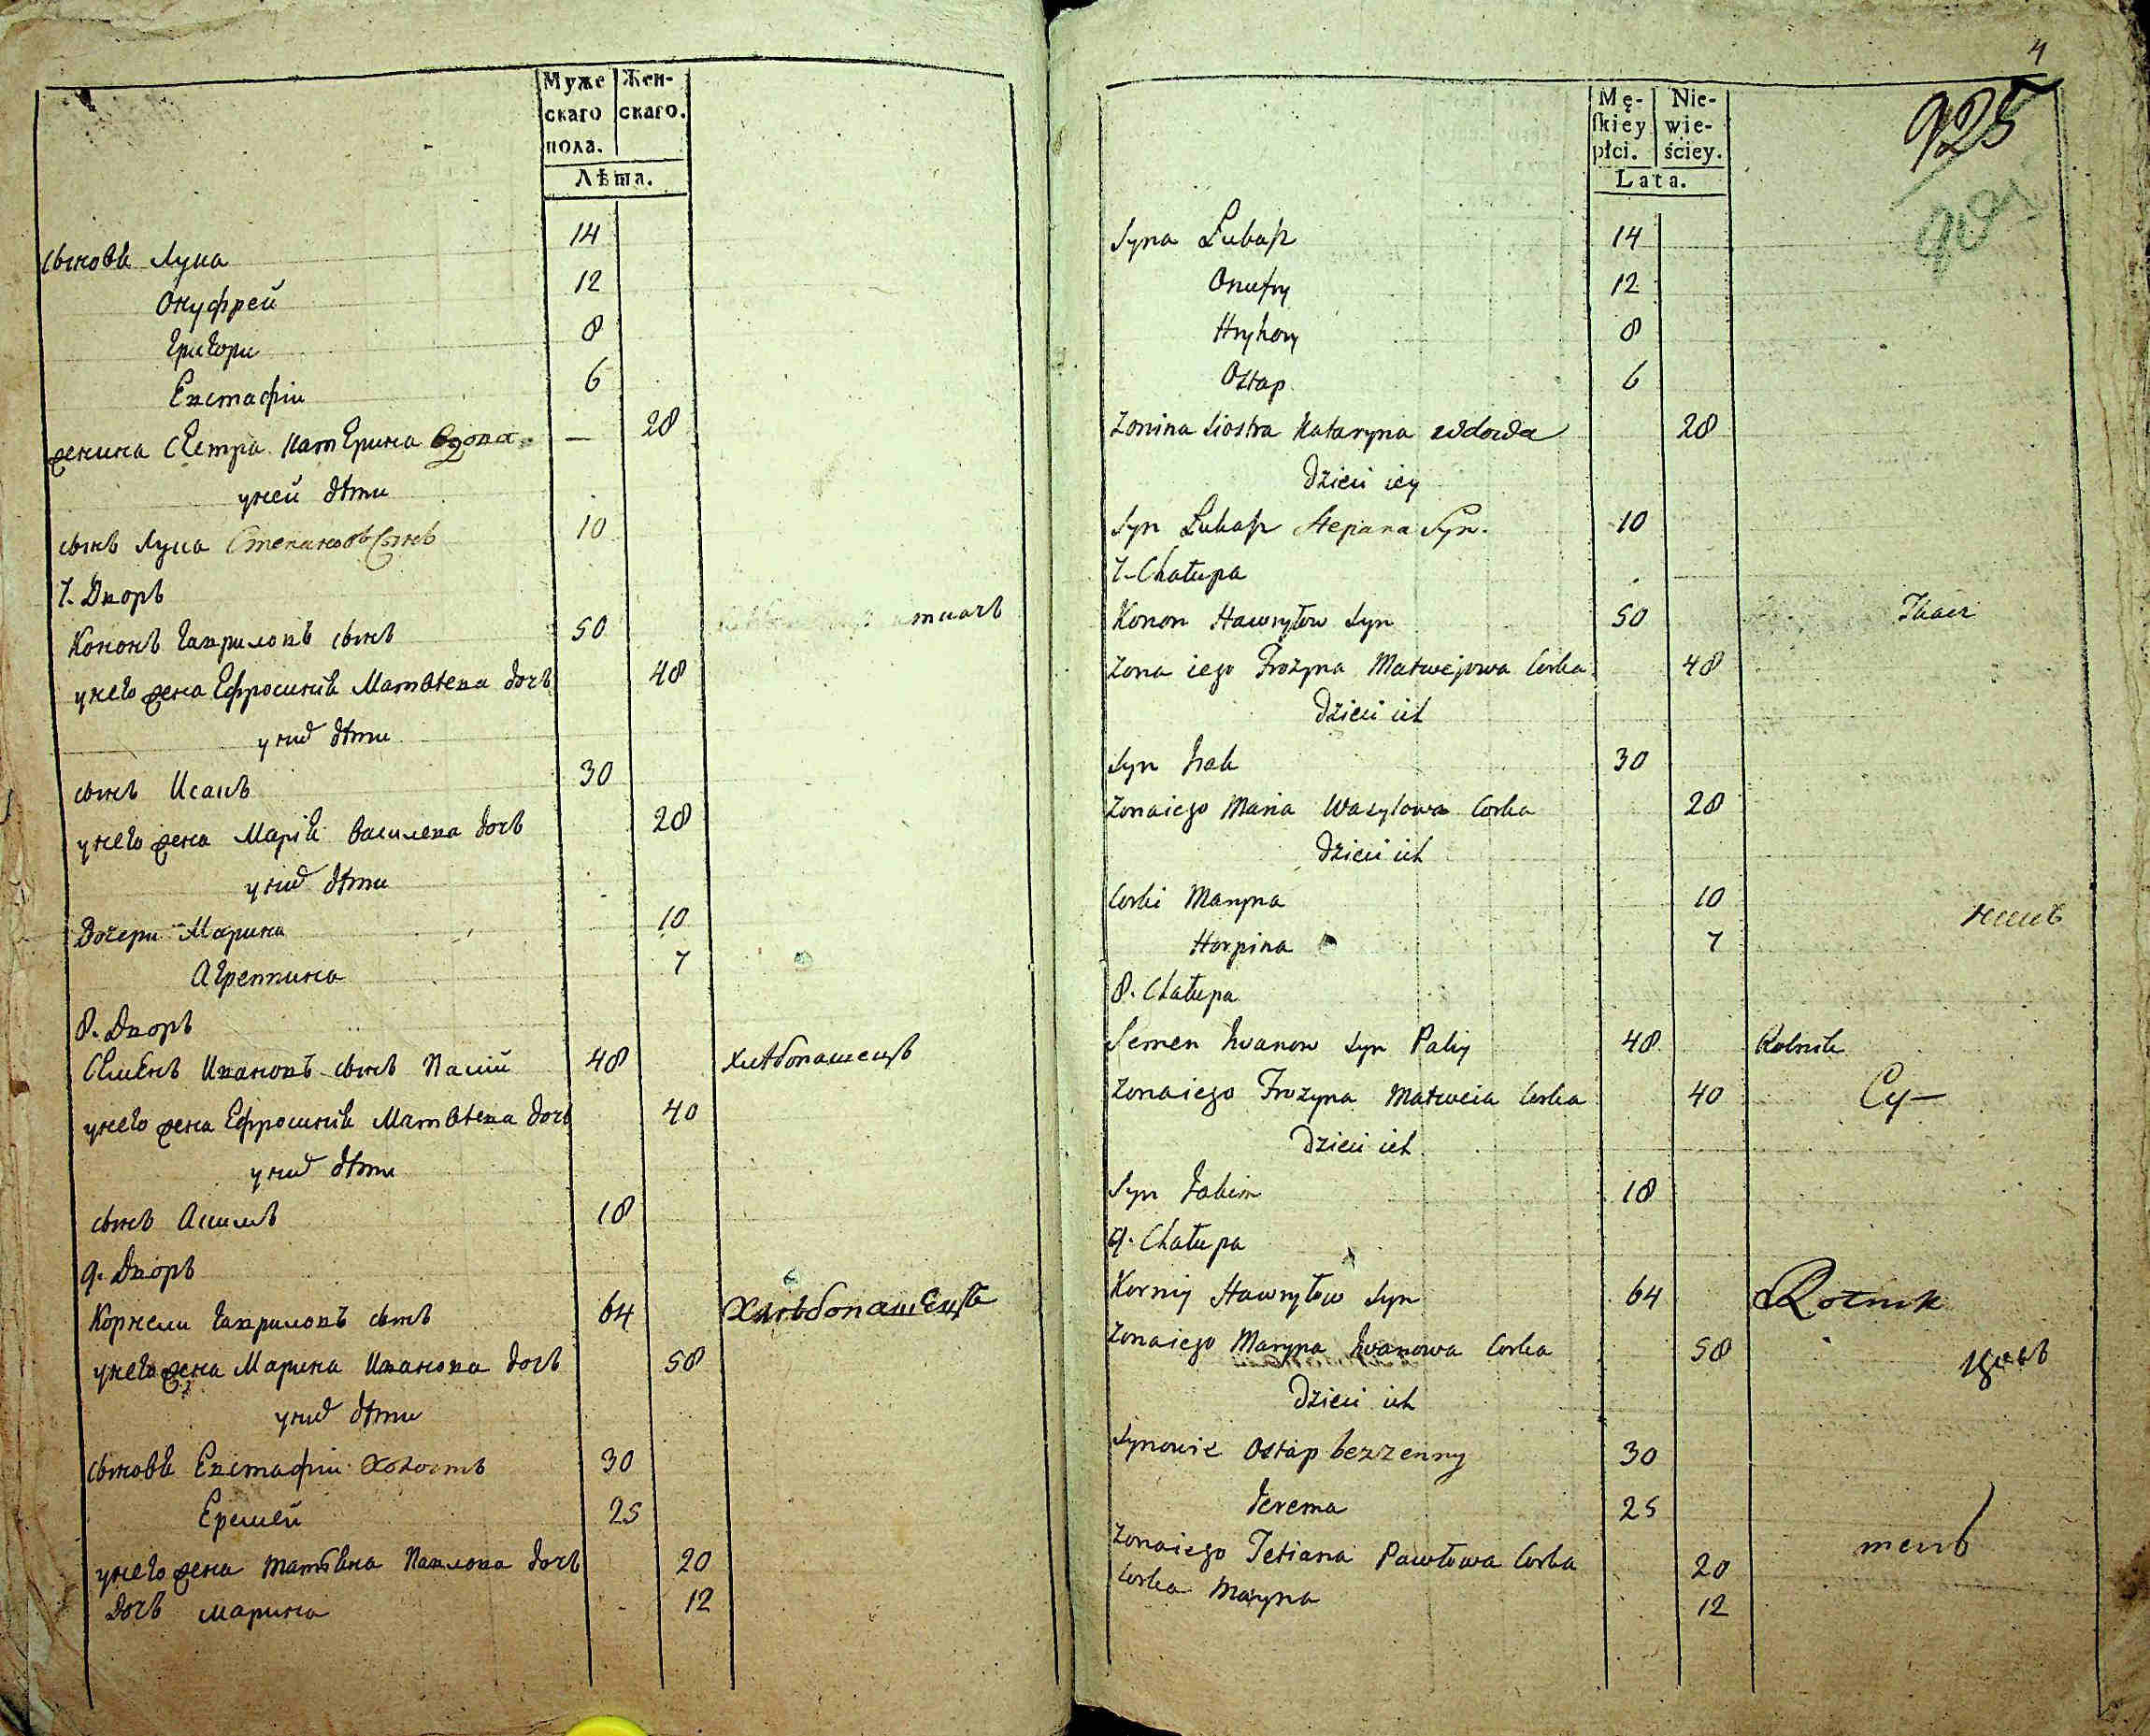 Муже Жен-
скаго скаго.
пола.
Лѣта.
сыновѣ Лука 14
Онуфрей 12
Григори 8
Евстафіи 6
женина сестра катерина вдова — 28
у ней дѣти
сынъ Лука Степановъ Сынъ 10
7. Дворъ
Кононъ Гавриловъ сынъ 50 ткачъ
у него жена Ефросинія Матвѣева дочь 48
у них дѣти
сынъ Исакъ 30
у него жена Марія василева дочь 28
у них дѣти
Дочери Марина 10
Агрепина 7
8. Дворъ
Семенъ Ивановъ сынъ Палій 48 хлѣбопашецъ
у него жена Ефросинія Матвѣева дочь 40
у них дѣти
сынъ Акимъ 18
9. Дворъ
Корнели Гавриловъ сынъ 64 Хлѣбопашецъ
у него жена Марина Иванова дочь 58
у них дѣти
сыновѣ Евстафіи холостъ 30
Еремей 25
у него жена татьяна Павлова дочь 20
дочь марина 12
4
Mę- Nie-
skiey wie-
płci. ściey.
Lata.
925
Syna Lukasz 14
Onufry 12
Hryhory 8
Ostap 6
Zonina Siostra Kataryna wdowa 28
Dzieci iey
Syn Lukasz Stepana Syn. 10
7. Chałupa
Konon Hawryłow Syn 50 Tkacz
Zona iego Frozyna Matwejowa Corka 48
Dzieci ich
Syn Isak 30
Zona iego Maria Wasylowa Corka 28
Dzieci ich
Corki Maryna 10
Horpina 7
8. Chałupa
Semen Iwanow Syn Paliy 48 Rolnik
Zona iego Frozyna Matweia Corka 40 Су—
Dzieci ich
Syn Jakim 18
9. Chałupa
Korniy Hawryłow Syn 64 Rolnik
Zona iego Maryna Iwanowa Corka 58
Dzieci ich
Synowie Ostap bezzenny 30
Jerema 25
Zona iego Tetiana Pawłowa Corka 20
Corka Maryna 12